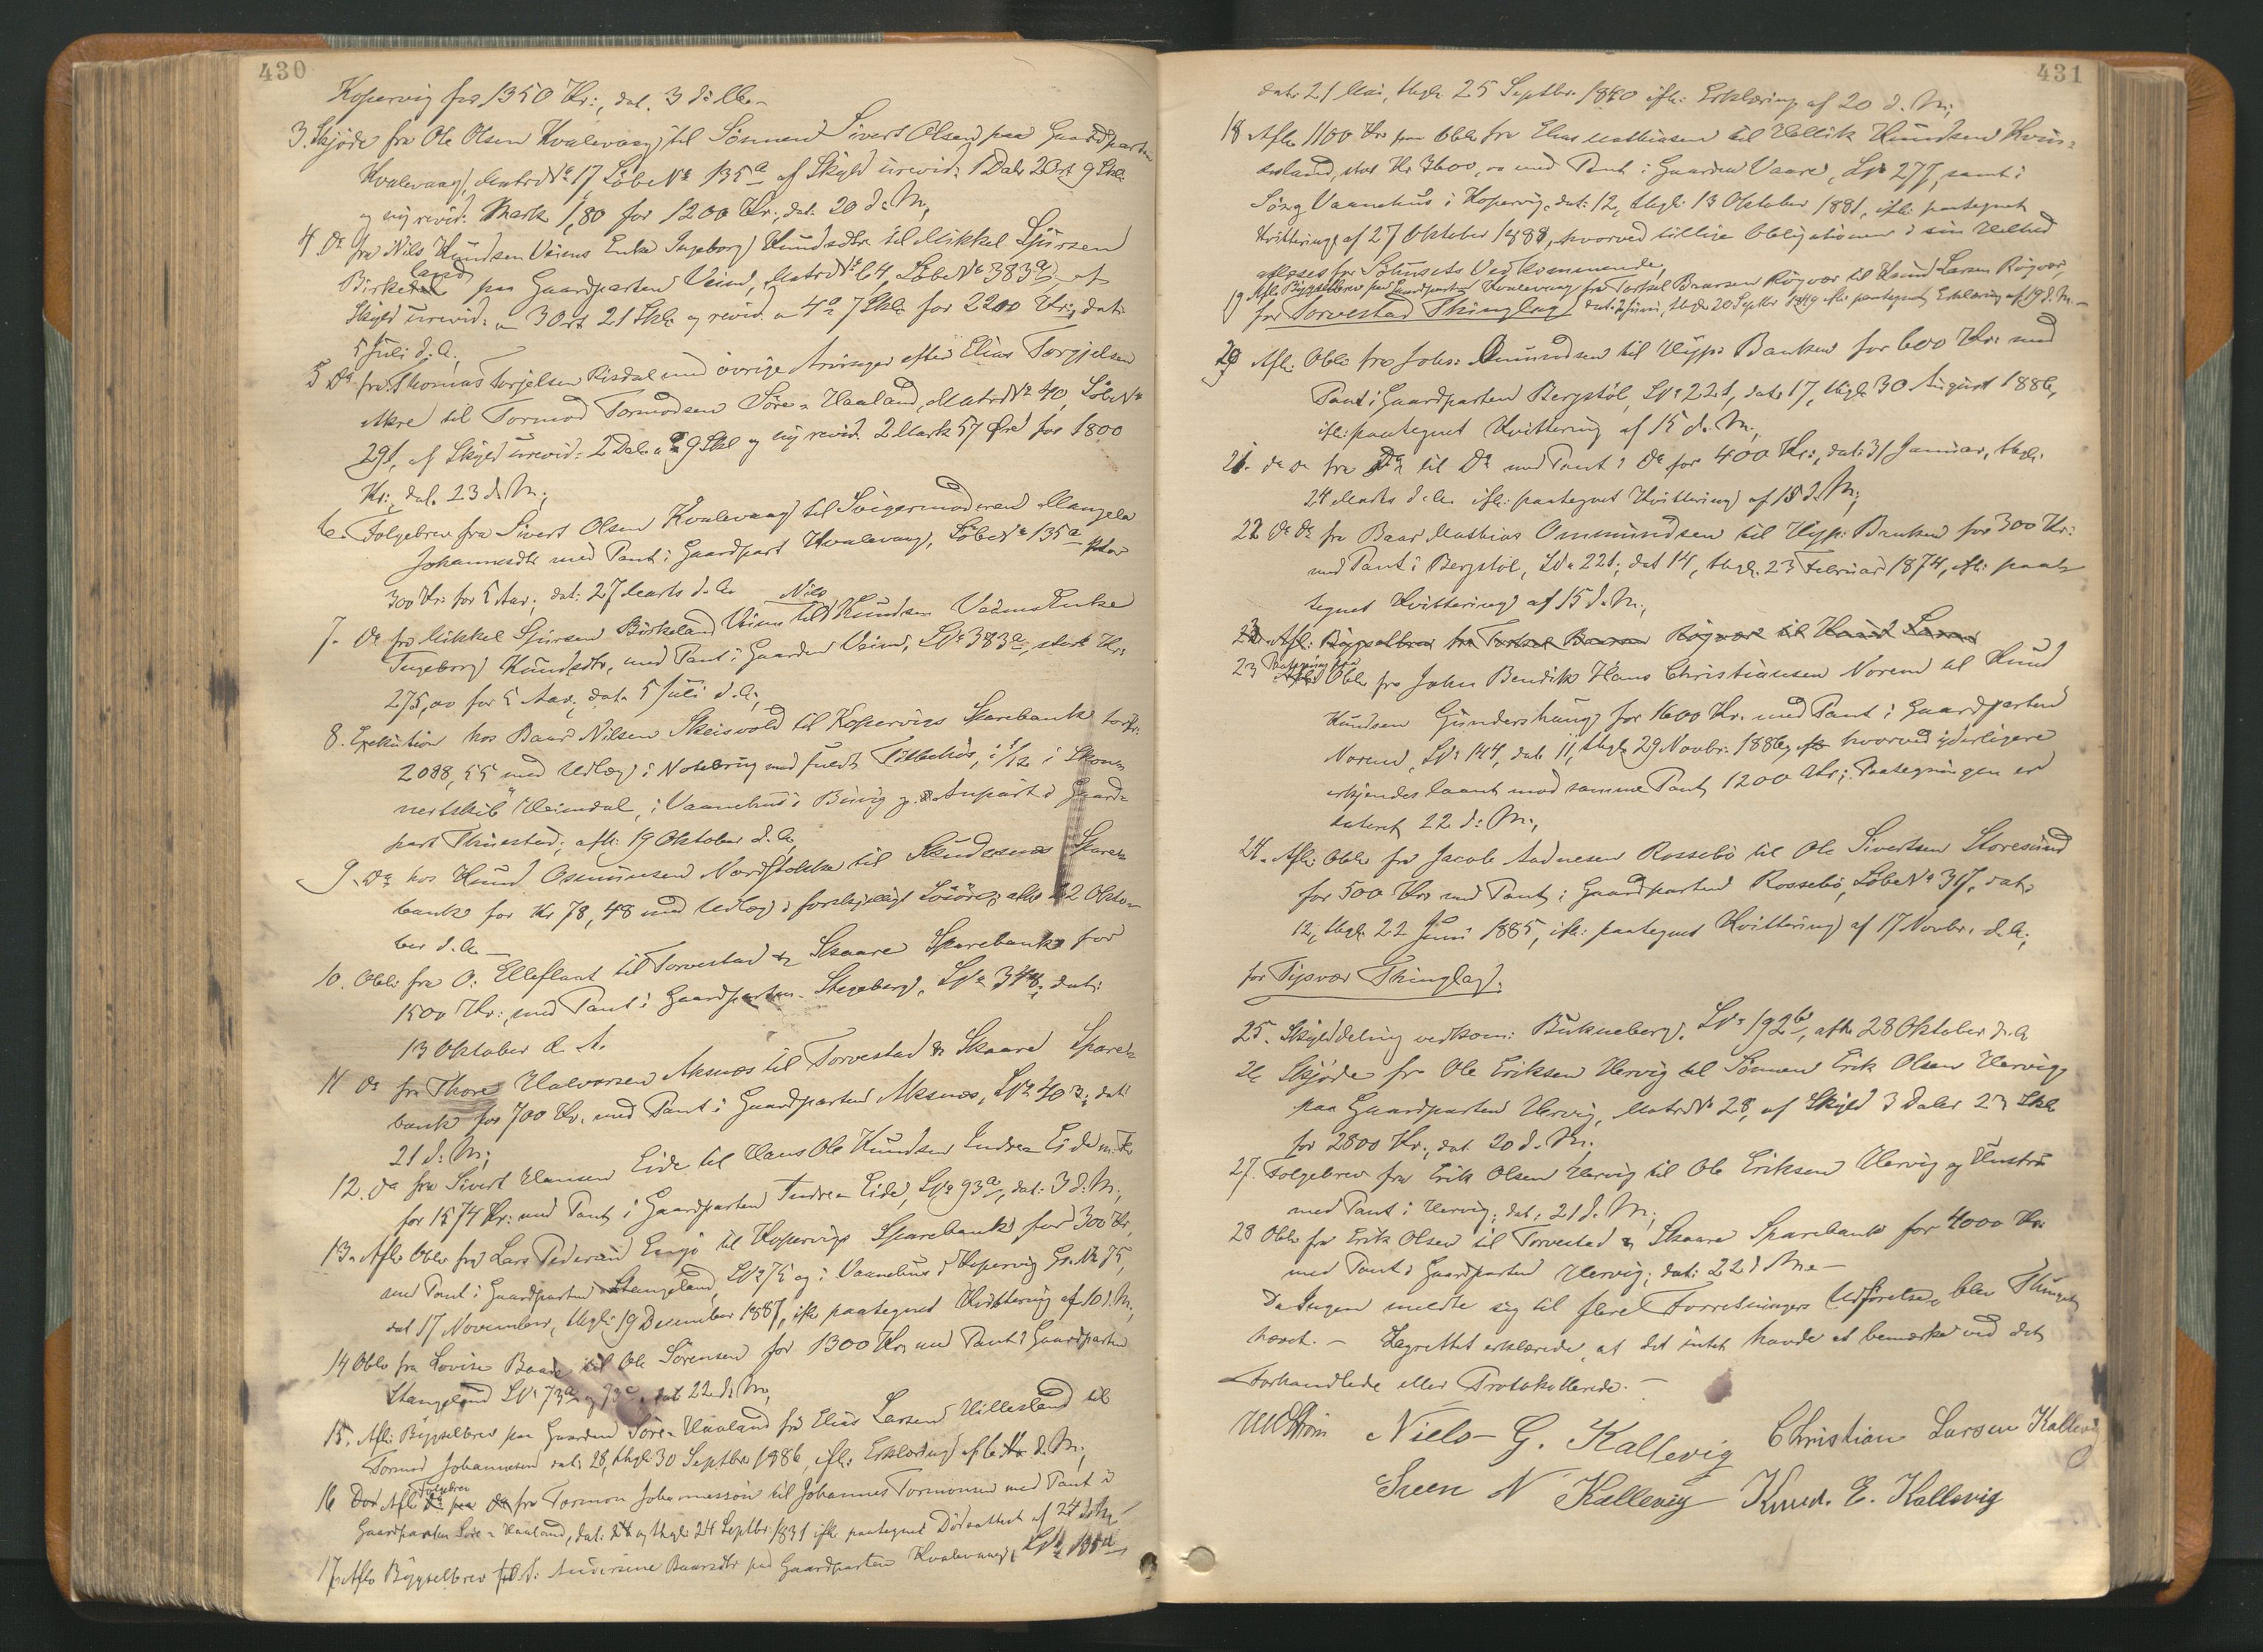 430
Kopervig for 1350 Kr:, dat. 3 d: M.-
3. Skjöde fra Ole Olsen Kvalevaag til Sönnen Sivert Olsen paa Gaardparten
Kvalevaag, Matr. No 17, Löbe No 135a af Skyld urevid: 1 Daler 2 Ort 9 Skl.
og ny revid. Mark 1,80 for 1200 Kr., dat. 20 d: M,
4 Do fra Nils Knudsen Veims Enke Ingeborg Knudsdtr. til Mikkel Sjursen
Birkeland paa Gaardparten Veim, Matr. No 64, Löbe No 383a, af
Skyld urevid: 3 Ort 21 Skl. og revid. 4o 7 Skl. for 2200 Kr., dat.
5 Juli d. A.;
5 Do fra Thomas Torjelsen Risdal med övrige Arvinger efter Elias Torgjelsen
Akre til Tormod Tormodsen Söre-Haaland, Matr. No 40, Löbe No
291, af Skyld urevid: 2 Daler 9 Skl og ny revid. 2 Mark 57 Öre for 1800
Kr:, dat. 23 d. M;
6. Folgebrev fra Sivert Olsen Kvalevaag til Svigermoderen Mangela
Johannesdtr med Pant i Gaardpart Kvalevaag, Löbe No 135a stor
300 Kr. for 5 Aar, dat: 27 Marts d. A.
7. Do fra Mikkel Sjursen Birkeland Veim til Nils Knudsen Veims Enke
Ingeborg Knudsdtr, med Pant i Gaarden Veim, LNo 383a, stort Kr:
275,00 for 5 Aar, dat. 5 Juli d. A.;
8. Exekution hos Baar Nilsen Skeisvold til Kopervigs Sparebank for Kr.
2088,55 med Udlæg i Notebrug med fuldt Tilbehör, i 1/12 i Skon-
nertskib "Heimdal, i Vaanehus i Buvig og Anpart i Gaard-
part Thuestad; afh: 19 Oktober d. A,
9. Do hos Knud Osmundsen Nordstokke til Skudesnæs Spare-
bank for Kr 78,48 med Udlæg i forskjelligt Lösöre; afh 22 Okto-
ber d. A. -
10. Obl: fra O. Elleflaat til Torvestad & Skaare Sparebank for
1500 Kr:, med Pant i Gaardparten Stegeberg, LNo 348, dat:
13 Oktober d. A.
11 Do fra Thore Halvorsen Aksnæs til Torvestad & Skaare Spare-
bank for 700 Kr. med Pant i Gaardparten Aksnæs, LNo 403; dat:
21 d: M;
12. Do fra Sivert Hansen Eide til Hans Ole Knudsen Indre-Eide m. Fl.
for 1574 Kr: med Pant i Gaardparten Indre-Eide, LNo 93a, dat: 3 d. M.,
13. Afl. Obl. fra Lars Pedersen Engö til Kopervigs Sparebank for 300 Kr,
med Pant i Gaardparten Stangeland, LNo 75 og i Vaanehus i Kopervig Gr. No 75,
dat 17 November, thgl: 19 December 1887, ifl: paategnet Kvittering af 10 d. M,
14 Obl. fra Lovise Baade til Ole Sörensen for 1300 Kr. med Pant i Gaardparten
Stangeland LNo 73a og 73c, dat. 22 d. M,
15. Afl. Bygselbrev paa Gaarden Söre-Haaland fra Elias Larsen Hillesland til
Tormod Johannesen dat. 28, thgl: 30 Septbr 1886, ifl: Erklæring af 6 d. M.,
16 Afl. Folgebrev fra Tormon Johannesson til Johannes Tormonsen med Pant i
Gaardparten Söre-Haaland, dat: 24 og thgl: 24 Septbr. 1831 ifl. paategnet Dödsattest af 24 d. M.
17. Afl. Bygselbrev til A. Andersine Baarsdtr paa Gaardparten Kvalevaag, LNo 135a
431
dat. 21 Mai, thgl: 25 Septbr. 1840 ifl: Erklæring af 20 d. M;
18 Afl. 1100 Kr paa Obl. fra Elias Mathiasen til Vallik Knudsen Kvin-
nesland, stor Kr. 3600,00 med Pant i Gaarden Vaare, LNo 277, samt i
Söeg Vaanehus i Kopervig, dat: 12, thgl: 13 Oktober 1881, ifl: paategnet
Kvittering af 27 Oktober 1888, hvorved tillige Obligationen i sin Helhed
aflæses for Söhusets Vedkommende,
19 Afl. Bygselbrev paa Gaardparten Kvalevaag fra Torkel Baarsen Rögvær til Knud Larsen Rögvær,
dat: 2 Juni, thgl: 20 Septbr 1849 ifl: paategnet Erklæring af 19 d. M. -
for Torvestad Thinglag:
20 Afl: Obl: fra Johs: Omundsen til Hyp. Banken for 600 Kr. med
Pant i Gaardparten Bergstöl, LNo 221, dat. 17, thgl: 30 August 1886,
ifl: paategnet Kvittering af 15 d. M,
21. do do fra Do til Do med Pant i Do for 400 Kr:, dat: 31 Januar, thgl:
24 Marts d. A. ifl: paategnet Kvittering af 15 d. M;
22 do Do fra Baar Mathias Ommundsen til Hyp: Banken for 300 Kr:
med Pant i Bergstöl, LNo 221; dat 14, thgl. 23 Februar 1874, ifl: paa-
tegnet Kvittering af 15 d. M,
23. Afl: Bygselbrev fra Torkel Baarsen Rögvær til Knud Larsen
23 Paategning paa Obl. fra John Bendik Hans Christiansen Norem til Knud
Knudsen Gundershaug for 1600 Kr. med Pant i Gaardparten
Norem, LNo 144, dat. 11, thgl. 29 Novbr. 1886, hvorved yderligere
erkjendes laant mod samme Pant 1200 Kr; Paategningen er
dateret 22 d: M.,
24. Afl. Obl. fra Jacob Aadnesen Rossebö til Ole Sivertsen Storesund
for 500 Kr. med Pant i Gaardparten Rossebö, Löbe No 317, dat.
12, thgl. 22 Juni 1885, ifl: paategnet Kvittering af 17 Novbr. d. A.;
for Tysvær Thinglag:
25. Skylddeling vedkom: Bukneberg. LNo 192b, afh 28 Oktober d. A
26 Skjöde fra Ole Eriksen Hervig til Sönnen Erik Olsen Hervig
paa Gaardparten Hervig, Matr. No 28, af Skyld 3 Daler 23 Skl.
for 2800 Kr., dat 20 d. M;
27. Folgebrev fra Erik Olsen Hervig til Ole Eriksen Hervig og Hustru
med Pant i Hervig; dat. 21 d. M;
28 Obl. fra Erik Olsen til Torvestad & Skaare Sparebank for 4000 Kr:
med Pant i Gaardparten Hervig; dat: 22 d M. -
Da Ingen meldte sig til flere Forretningers Udförelse, blev Thinget
hævet. - Lagrettet erklærede, at det intet havde at bemærke ved det
Forhandlede eller Protokollerede. -
Niels G. Kallevig Christian Larsen Kallevig
Sveen N Kallevig Knud. E. Kallevig